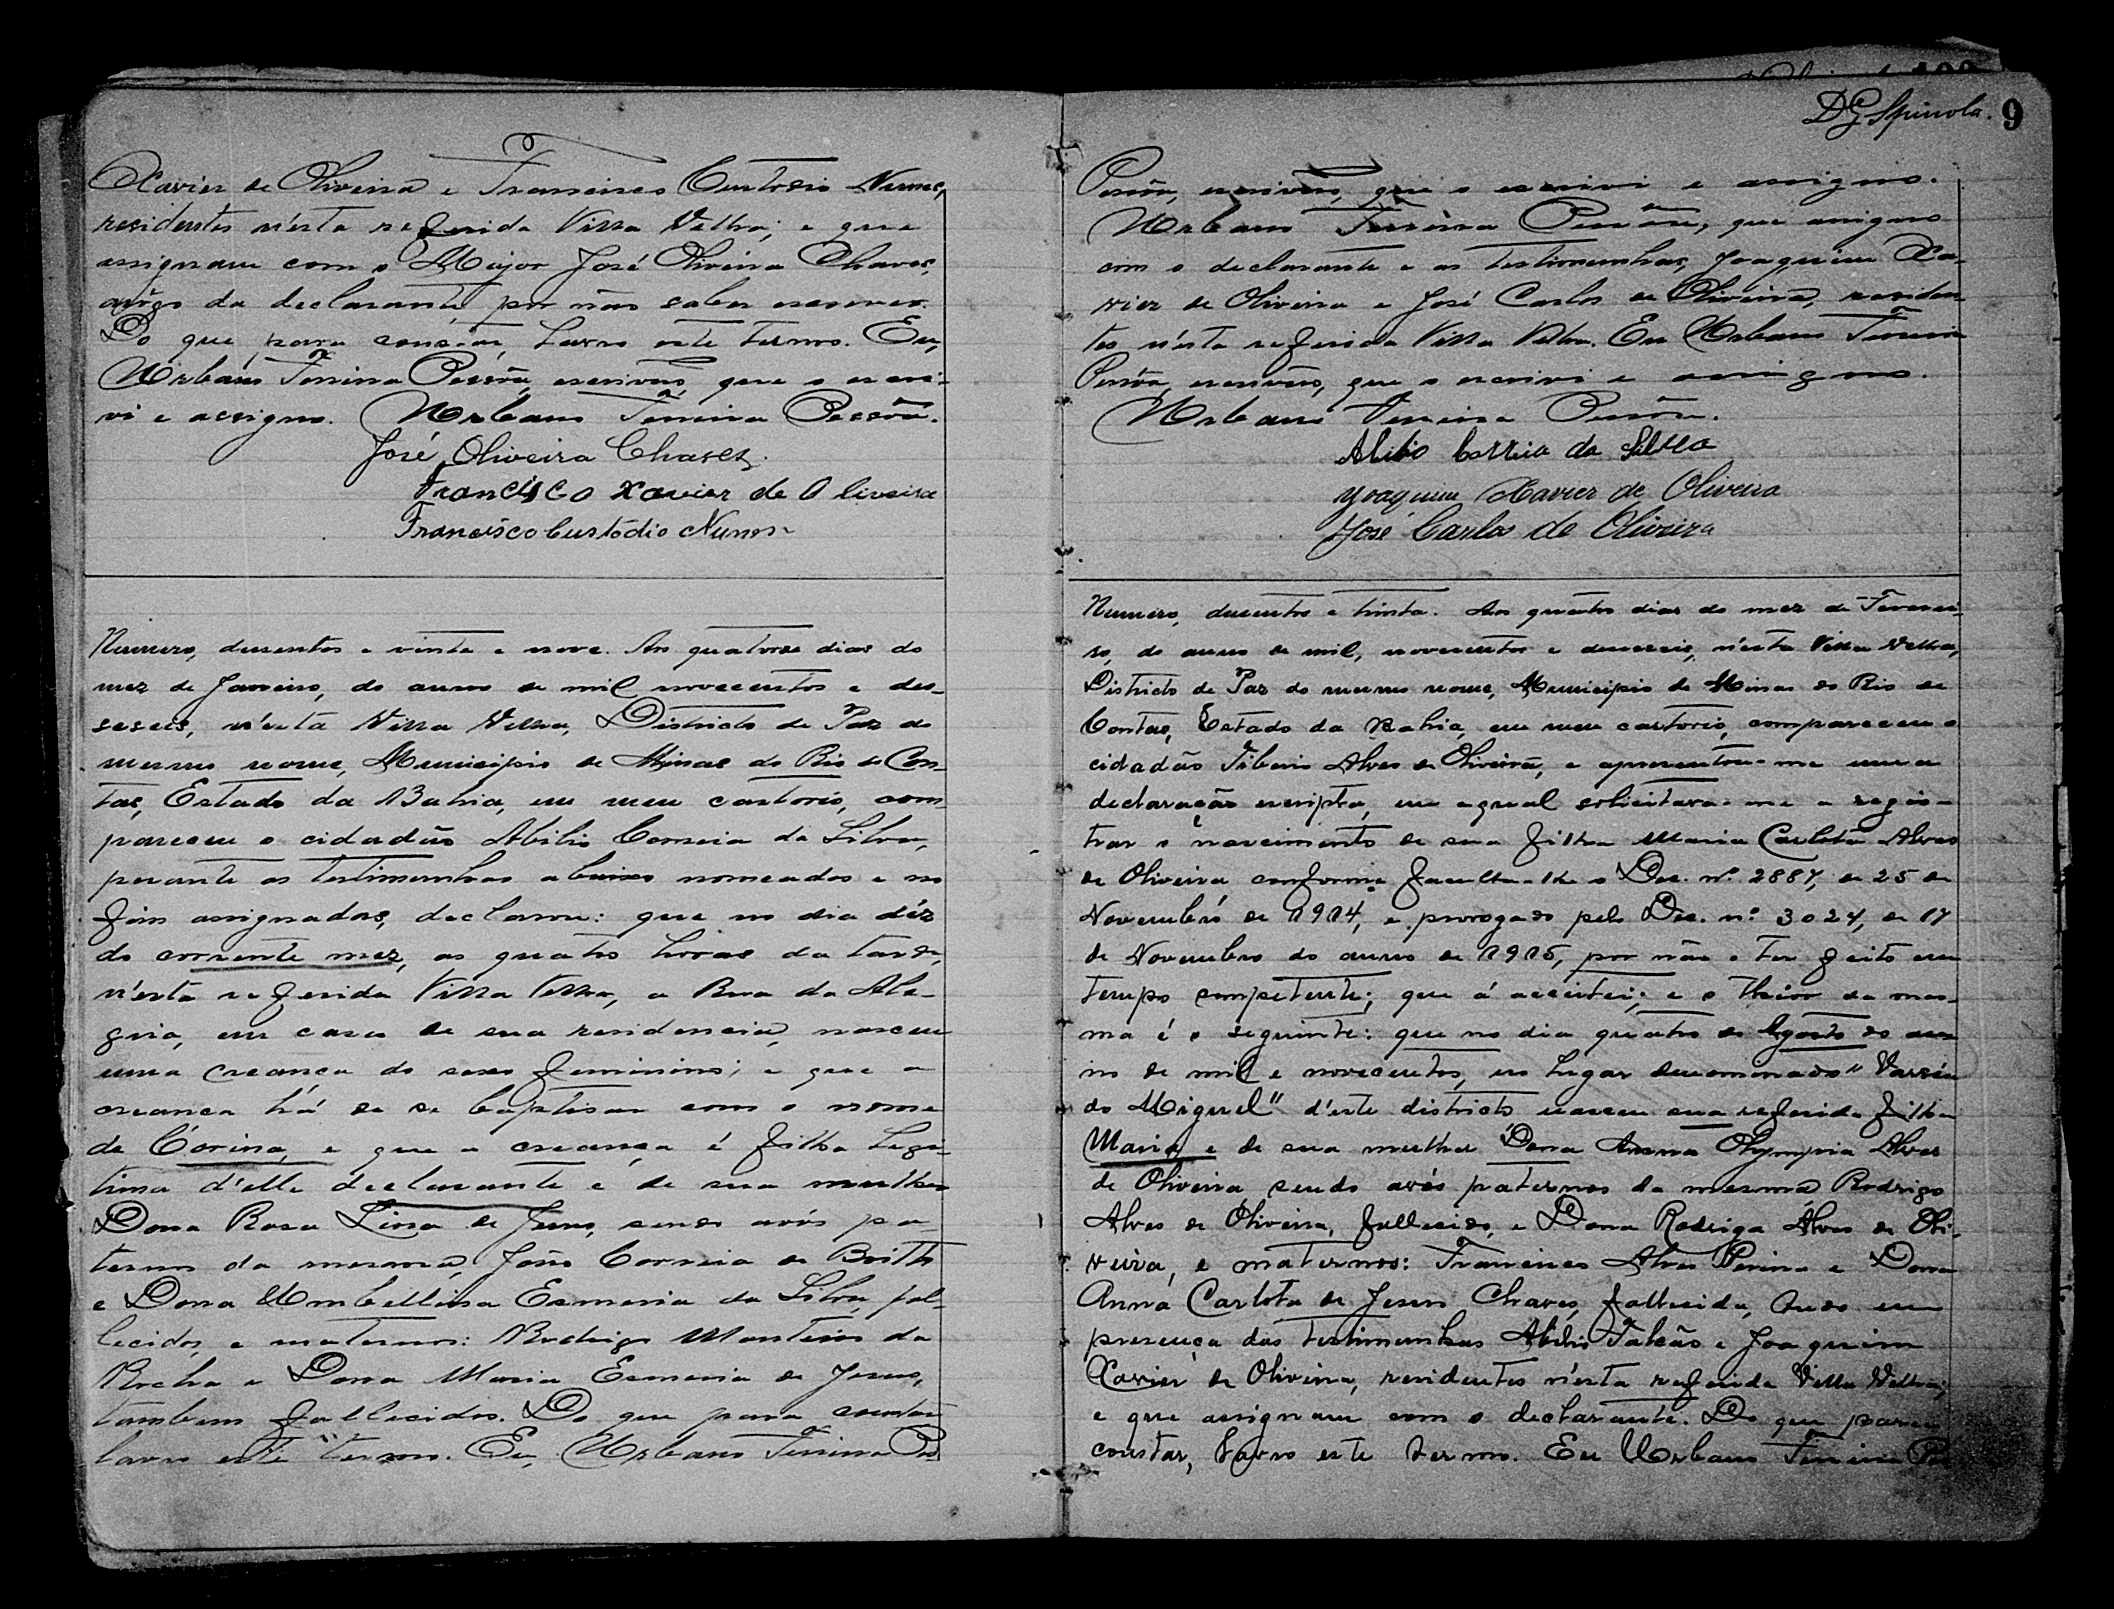 Xavier de Oliveira e Francisco Custodio Nunes,
residentes n'esta referida Villa Velha; e que
assignam com o Major José Oliveira Chaves,
arôgo da declarante, por não saber escrever.
Do que para constar, lavro este termo. Eu,
Urbano Ferreira Pessôa, escrivão, que o escre-
vi e assigno. Urbano Ferreira Pessôa.
José Oliveira Chaves.
Francisco Xavier de Oliveira
Francisco Custódio Nunes
Numero, dusentos e vinte e nove. Aos quatorse dias do
mez de Janeiro, do anno de mil novecentos e des-
seseis, n'esta Villa Velha, Districto de Paz do
mesmo nome, Municipio de Minas do Rio de Con-
tas, Estado da Bahia, em meu cartorio, com
pareceu o cidadão Abilio Correia da Silva,
perante as testimunhas abaixo nomeadas e no
fim assignadas, declarou: que no dia déz
do corrente mez, as quatro horas da tarde,
n'esta referida Villa Velha, a Rua da Ale-
gria, em casa de sua residencia, nasceu
uma creança do sexo feminino; e que a
creança há de se baptisar com o nome
de Corina, e que a creança é filha legi-
tima d'elle declarante e de sua mulher
Dona Rosa Lina de Jesus, sendo avós pa
ternos da mesma, João Correia de Britto
e Dona Umbellina Esmeria da Silva, fal-
lecidos, e maternos: Rodrigo Monteiro da
Rocha e Dona Maria Esmeria de Jesus,
tambem fallecidos. Do que para constar
lavro este termo. Eu, Urbano Ferreira Pes
D G Spinola. 9
Pessôa, escrivão, que o escrivi e assigno.
Urbano Ferreira Pessôa, que assigno
com o declarante e as testimunhas, Joaquim Xa-
vier de Oliveira e José Carlos de Oliveira, residen-
tes n'esta referida Villa Velha. Eu Urbano Ferreira
Pessôa, escrivão, que o escrivi e assigno.
Urbano Ferreira Pessôa.
Abilio Correia da Silva
Joaquim Xavier de Oliveira
José Carlos de Oliveira
Numero, dusentos e trinta. Aos quatro dias do mez de Feverei-
ro, do anno de mil, novecentos e deseseis, n'esta Villa Velha,
Districto de Paz do mesmo nome, Municipio de Minas do Rio de
Contas, Estado da Bahia, em meu cartorio, compareceu o
cidadão Tiberio Alves de Oliveira, e apresentou-me uma
declaração escripta, em a qual solicitava-me a regis-
trar o nascimento de sua filha Maria Carlota Alves
de Oliveira conforme faculta-lhe o Dec. nº 2887, de 25 de
Novembro de 1914, e prorogado pelo Dec. nº 3024, de 17
de Novembro do anno de 1915, por não o ter feito em
tempo competente; que á acceitei; e o theôr da mes-
ma é o seguinte: que no dia quatro de Agosto do an-
no de mil e novecentos, no lugar denominado "Varsea
do Miguel" d'este districto nasceu sua referida filha
Maria e de sua mulher Dona Anna Olympia Alves
de Oliveira, sendo avós paternos da mesma Rodrigo
Alves de Oliveira, fallecido, e Dona Rodriga Alves de Oli-
veira, e maternos: Francisco Alves Pereira e Dona
Anna Carlota de Jesus Chaves, fallecida, tudo em
presença das testimunhas Abilio Falcão e Joaquim
Xavier de Oliveira, residentes n'esta referida Villa Velha;
e que assignam com o declarante. Do que para
constar, lavro este termo. Eu Urbano Ferreira Pes